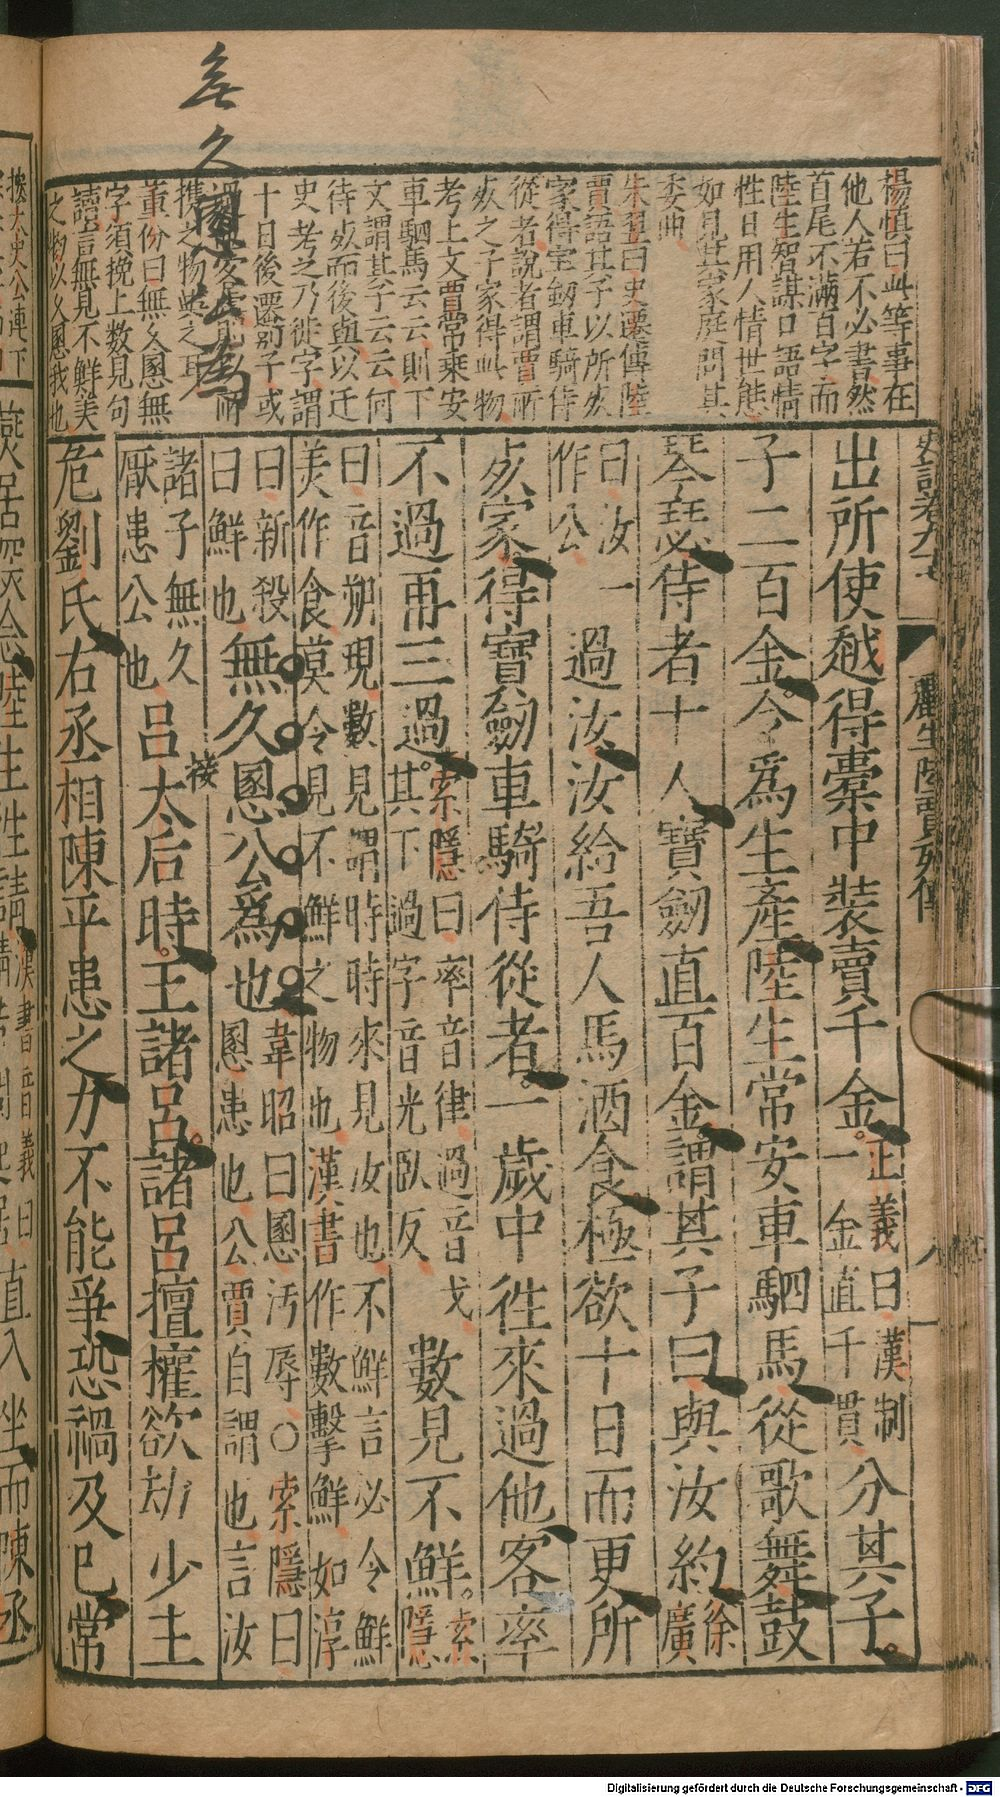 無久慁公為
楊慎曰此等事在
他人若不必書然
首尾不滿百字而
陸生智謀口語情
性日用人情世態
如見其家庭問其
委曲
朱翌曰史遷傳陸
賈語其子以所死
家得寶劔車騎侍
從者說者謂賈所
死之子家得此物
考上文賈常乗安
車駟馬云云則下
文謂其子云云何
待死而後與以迁
史考之乃徙字謂
十日後遷别子或
携之物與之耳
董份曰無久慁無
字須挽上数見句
讀言無見不鮮美
之物以久慁我也
史記卷九十七
酈生陸賈列傳
八
出所使越得橐中裝賣千金正義曰漢制一金直千貫分其子
子二百金令爲生產陸生常安車駟馬從歌舞鼓
琴瑟侍者十人寶劔直百金謂其子曰與汝約徐廣
曰汝一作公過汝汝給吾人馬酒食極欲十日而更所
死家得寶劔車騎侍從者一歲中徃來過他客率
不過再三過索隱曰率音律過音戈其下過字音光臥反數見不鮮索隱
曰音朔現數見謂時時來見汝也不鮮言必令鮮
美作食莫令見不鮮之物也漢書作數擊鮮如淳
曰新殺曰鮮也無久慁公爲也韋昭曰慁汚辱○索隱曰慁患也公賈自謂也言汝
諸子無久厭患公也呂太后時王諸呂諸呂擅權欲刼少主
接
危劉氏右丞相陳平患之力不能爭恐禍及己常
燕居深念陸生徃請漢書音義曰
直入坐而陳丞
Digitalisierung gefördert durch die Deutsche Forschungsgemeinschaft - DFG